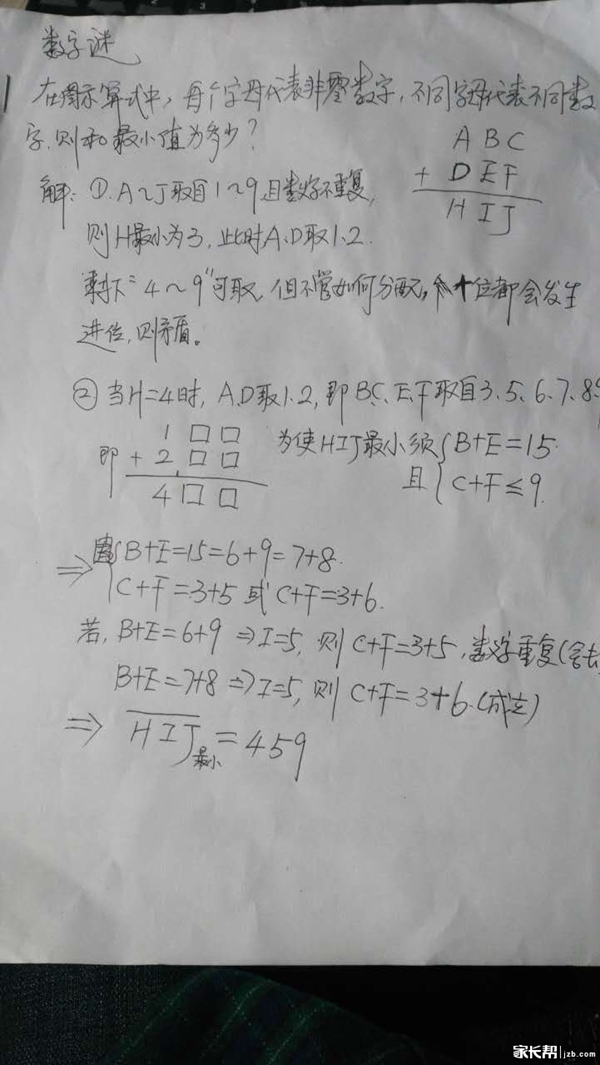 数字谜
在图示算式中,每个字母代表非零数字,不同字母代表不同数
字.则和最小值为多少?
A B C
+ D E F
H I J
解:①.A~J取自1~9且数字不重复,
则H最小为3,此时A、D取1、2.
剩下"4~9"可取,但不管如何分配,个十位都会发生
进位,则矛盾。
②当H=4时,A、D取1、2,即B、C、E、F取自3、5、6、7、8、9
即
1 □ □
+ 2 □ □
4 □ □
为使HIJ最小须{B+E=15
且{C+F≤9
⇒ {B+E=15=6+9=7+8.
{C+F=3+5 或 C+F=3+6.
若,B+E=6+9⇒I=5,则C+F=3+5,数字重复(舍去
B+E=7+8⇒I=5,则C+F=3+6.(成立)
⇒ HIJ最小=459
家长帮 jzb.com